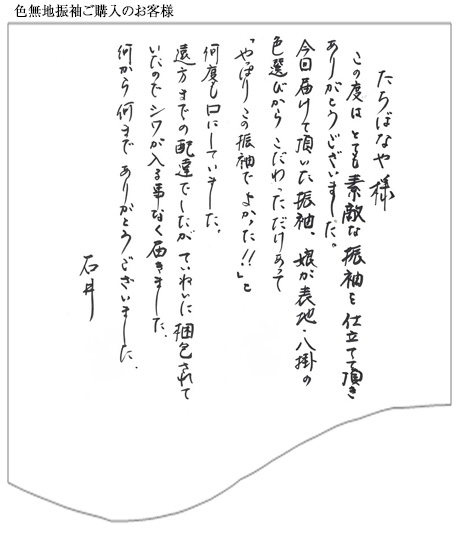 色無地振袖ご購入のお客様
たちばなや様
この度は とても素敵な振袖を仕立てて頂き
ありがとうございました。
今回届けて頂いた振袖、娘が表地・八掛の
色選びからこだわっただけあって
「やっぱりこの振袖でよかった!!」と
何度も口にしていました。
遠方までの配達でしたが ていねいに梱包されて
いたのでシワが入る事なく届きました。
何から何まで ありがとうございました。
石井